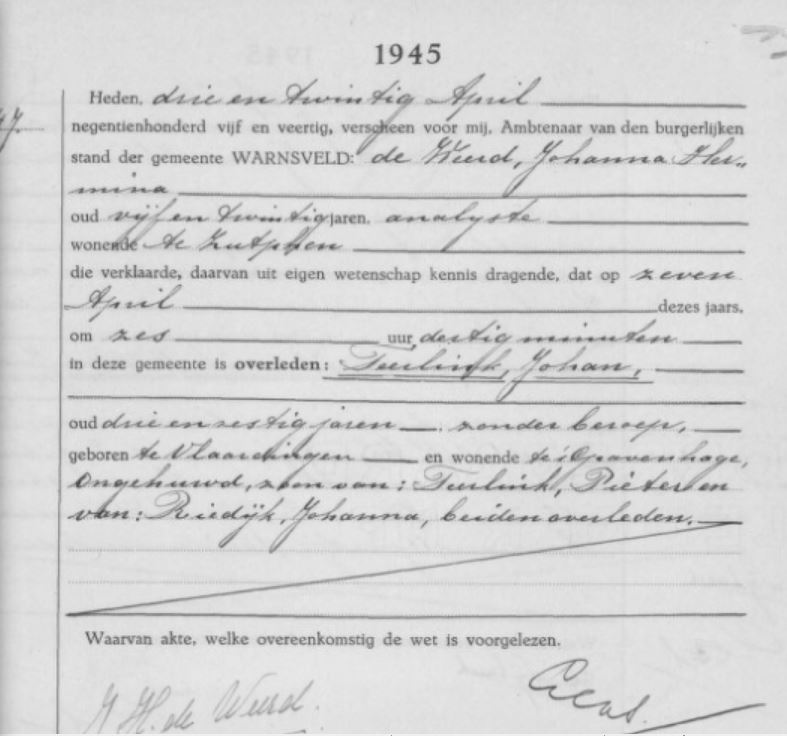 1945
Heden, drie en twintig April
negentienhonderd vijf en veertig, verscheen voor mij, Ambtenaar van den burgerlijken
stand der gemeente WARNSVELD: de Weerd, Johanna Her„
mina
oud vijf en twintig jaren, analyste
wonende te Zutphen
die verklaarde, daarvan uit eigen wetenschap kennis dragende, dat op zeven
April dezes jaars,
om zes uur, dertig minuten
in deze gemeente is overleden: Teerlink, Johan,
oud drie en zestig jaren, zonder beroep,
geboren te Vlaardingen en wonende te 's Gravenhage,
Ongehuwd, zoon van: Teerlink, Pieter en
van: Riedijk, Johanna, beiden overleden.
Waarvan akte, welke overeenkomstig de wet is voorgelezen.
J H. de Weerd.